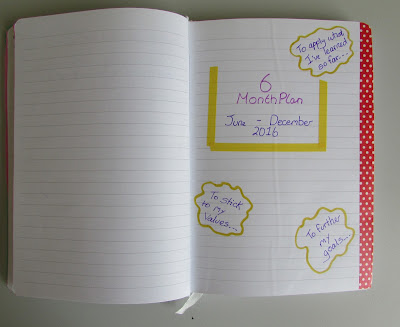 To apply what
I've learned
so far...
6
Month Plan
June - December
2016
To stick
to my
values...
To further
my
goals...